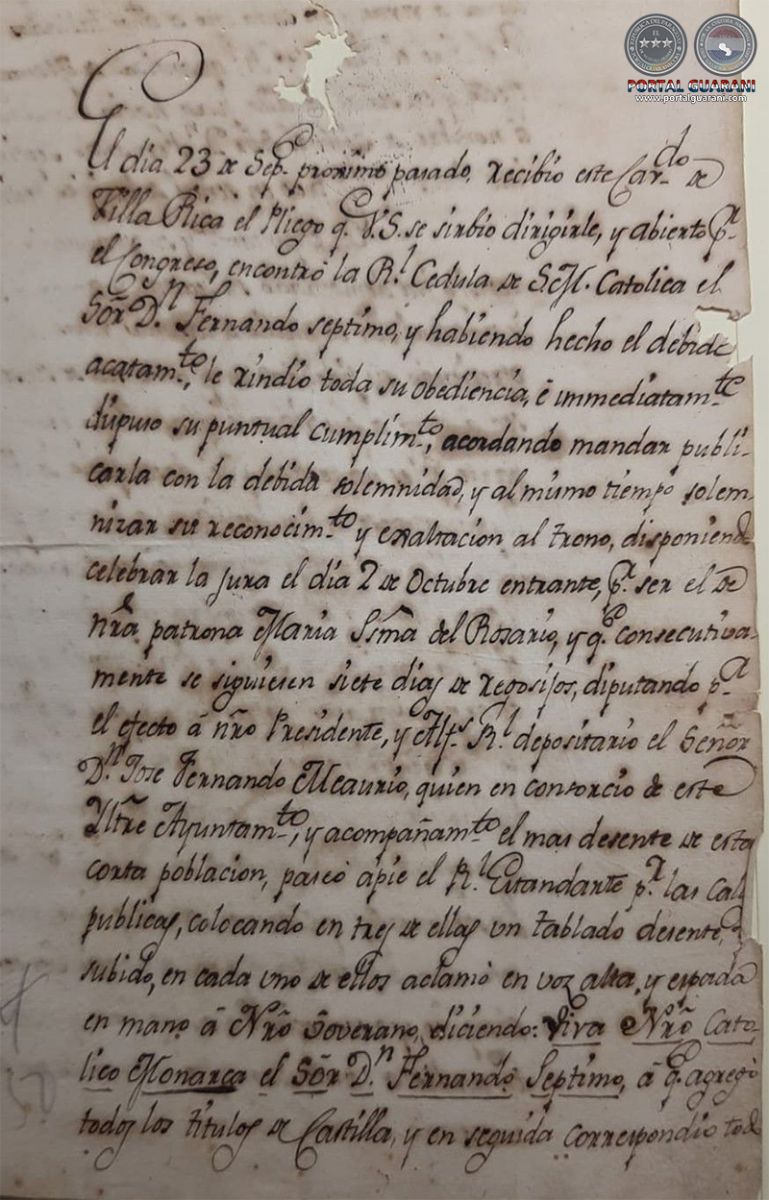 PORTAL GUARANI
www.portalguarani.com
El dia 23 de Sepe. proximo pasado, recibio este Cav.do de
Villa Rica el Pliego q.e V.S. se sirbió dirigirle, y abierto p.r
el Congreso, encontró la R.l Cedula de S.M. Catolica el
Sõr D.n Fernando septimo, y habiendo hecho el debido
acatam.to, le rindio toda su obediencia, é immediatam.te
dispuso su puntual cumplim.to, acordando mandar publi-
carla con la debida solemnidad, y al mismo tiempo solem-
nizar su reconocim.to y exaltacion al trono, disponiendo
celebrar la jura el dia 2 de Octubre entrante, p.r ser el de
nr̃a patrona Maria Ssm̃a del Rosario, y q.e consecutiva-
mente se siguiesen siete dias de regosijos, diputando p.a
el efecto á nr̃o Presidente, y Alf.s R.l depositario el Señor
D.n Jose Fernando Meaurio, quien en consorcio de este
Yltr̃e Ayuntam.to, y acompañam.to el mas desente de esta
corta poblacion, paseó apie el R.l Estandarte p.r las Cal
publicas, colocando en tres de ellas un tablado desente,
subido, en cada uno de ellos aclamó en voz alta, y espada
en mano á Nr̃o Soverano, diciendo: Viva Nr̃o Cato-
lico Monarca el Sõr D.n Fernando Septimo, á q.e agregó
todos los titulos de Castilla, y en seguida correspondió tod